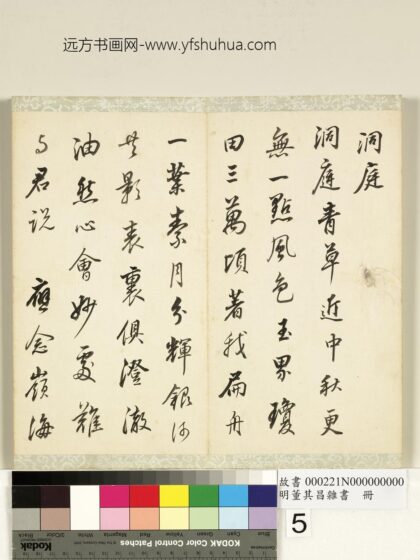 远方书画网-www.yfshuhua.com
洞庭
洞庭青草近中秋更
無一點風色玉界瓊
田三萬頃著我扁舟
一葉素月分輝銀河
共影表裏俱澄澈
油然心會妙處難
与君説 應念嶺海
故書 000221N000000000
明董其昌雜書 冊
5
Blue
Cyan
Green
Yellow
Red
Magenta
White
3/Color
Black
Kodak
KODAK Color Control Patches